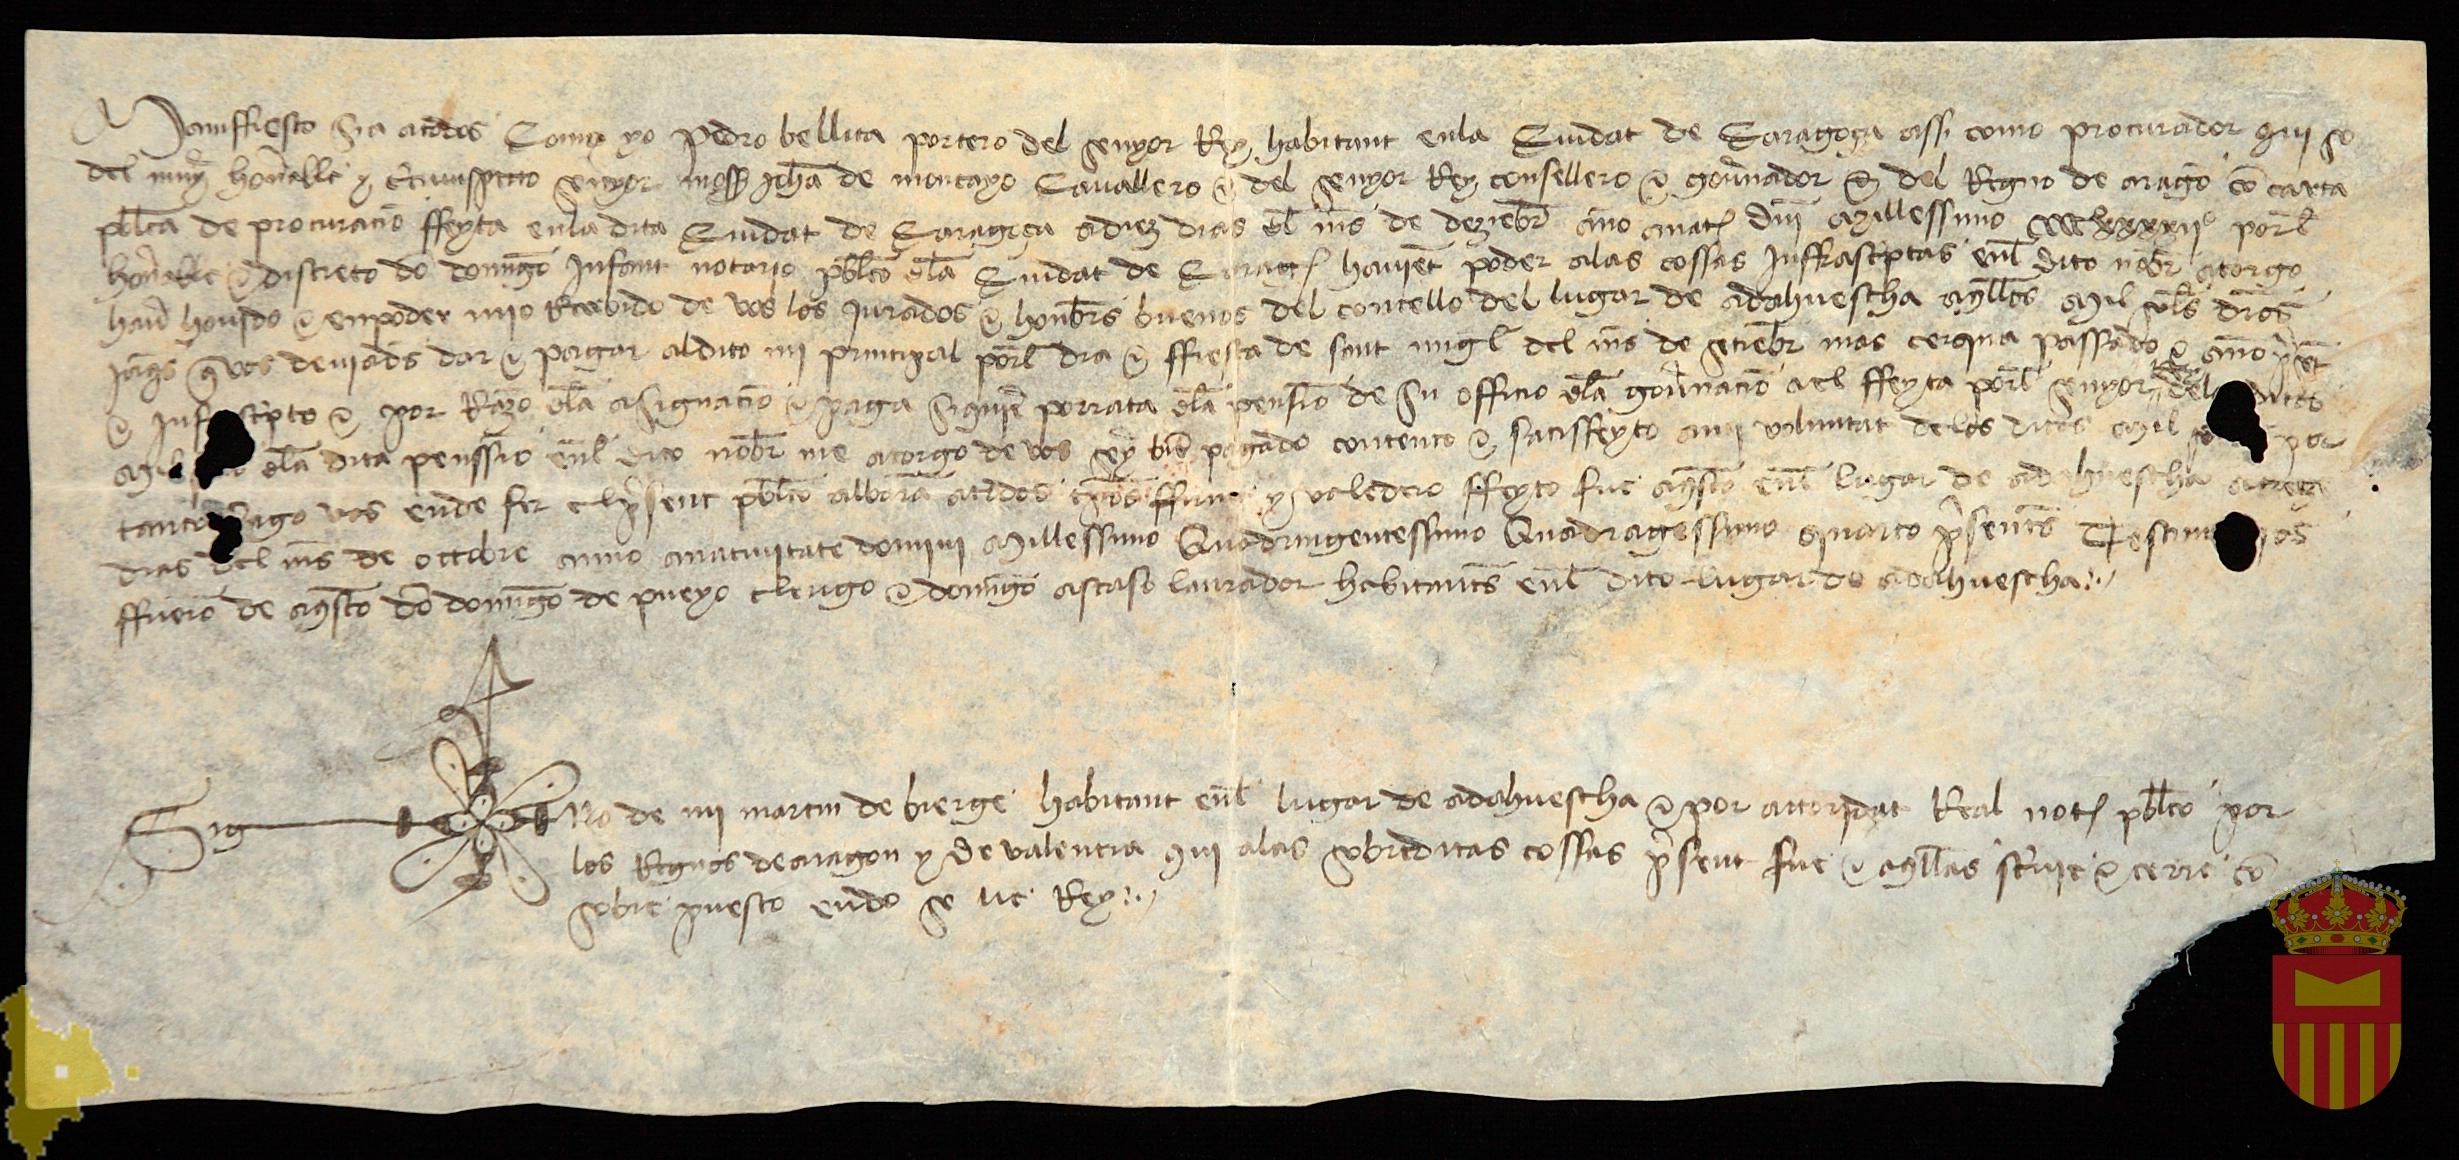 Maniffiesto sia atodos Como yo Pedro bellita portero del senyor Rey habitant enla Ciudat de Caragoça assi como procurador qui so
del muy honrable y circunspecto senyor moss Joha de moncayo Cavallero & del senyor Rey consellero & gounador del Regno de arago co carta
pblca de procuracio ffeyta enla dita Ciudat de Caragoça adiez dias dl mes de deziebr anno anat dni Millessimo CCCCxxxxii porl
honrable & discreto do domigo Infant notario pblco dla Ciudat de Carag hauiet poder alas cossas Inffrascptas enl dito nobr atorgo
hauer houido & enpoder mio Recebido de vos los Jurados & honbrs buenos del concello del lugar de adahuescha aqllos Mil sols dros
Jaqs qvos deuiades dar & pagar aldito mi principal porl dia & ffiesta de sant migl del mes de setiebr mas cerqua passado & anno psent
& Infrascpto & por Razo dla asignacio & paga porrata dla pensio de su officio dla gouernacio ael ffeyta porl senyor Rey del ditos
Mil dla dita penssio enl dito nobr me atorgo de vos seyer bie pagado contento & satisffeyto ami voluntat delos ditos Mil por
tanto fago vos ende fer el psent pblco albara atodos tpos ffirme y valedero ffeyto fue aqsto enl lugar de adahuescha atreze
dias del mes de octobre anno anatiuitate domini Millessimo Quadringentessimo Quadragessimo quarto psentes Testimonios
ffuero de aqsto do domigo de pueyo clerigo & domigo ascaso laurador habitantes enl dito lugar de adahuescha
Sig no de mi martin de bierge habitant enl lugar de adahuescha & por actoridat Real not pblco por
los Regnos de aragon y de valencia qui alas sobreditas cossas psent fue & aqllas scriuie & cerre co
sobre puesto endo se lie Rey